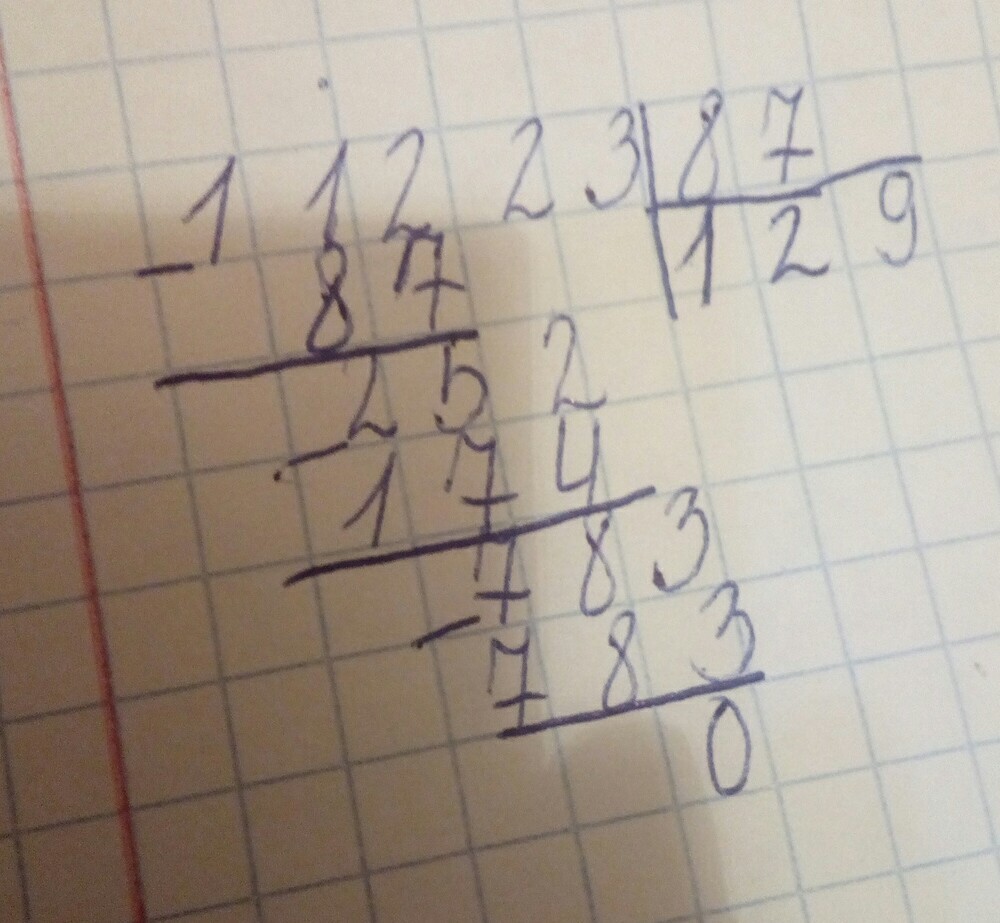 - 11223 | 87
87 129
252
- 174
783
- 783
0